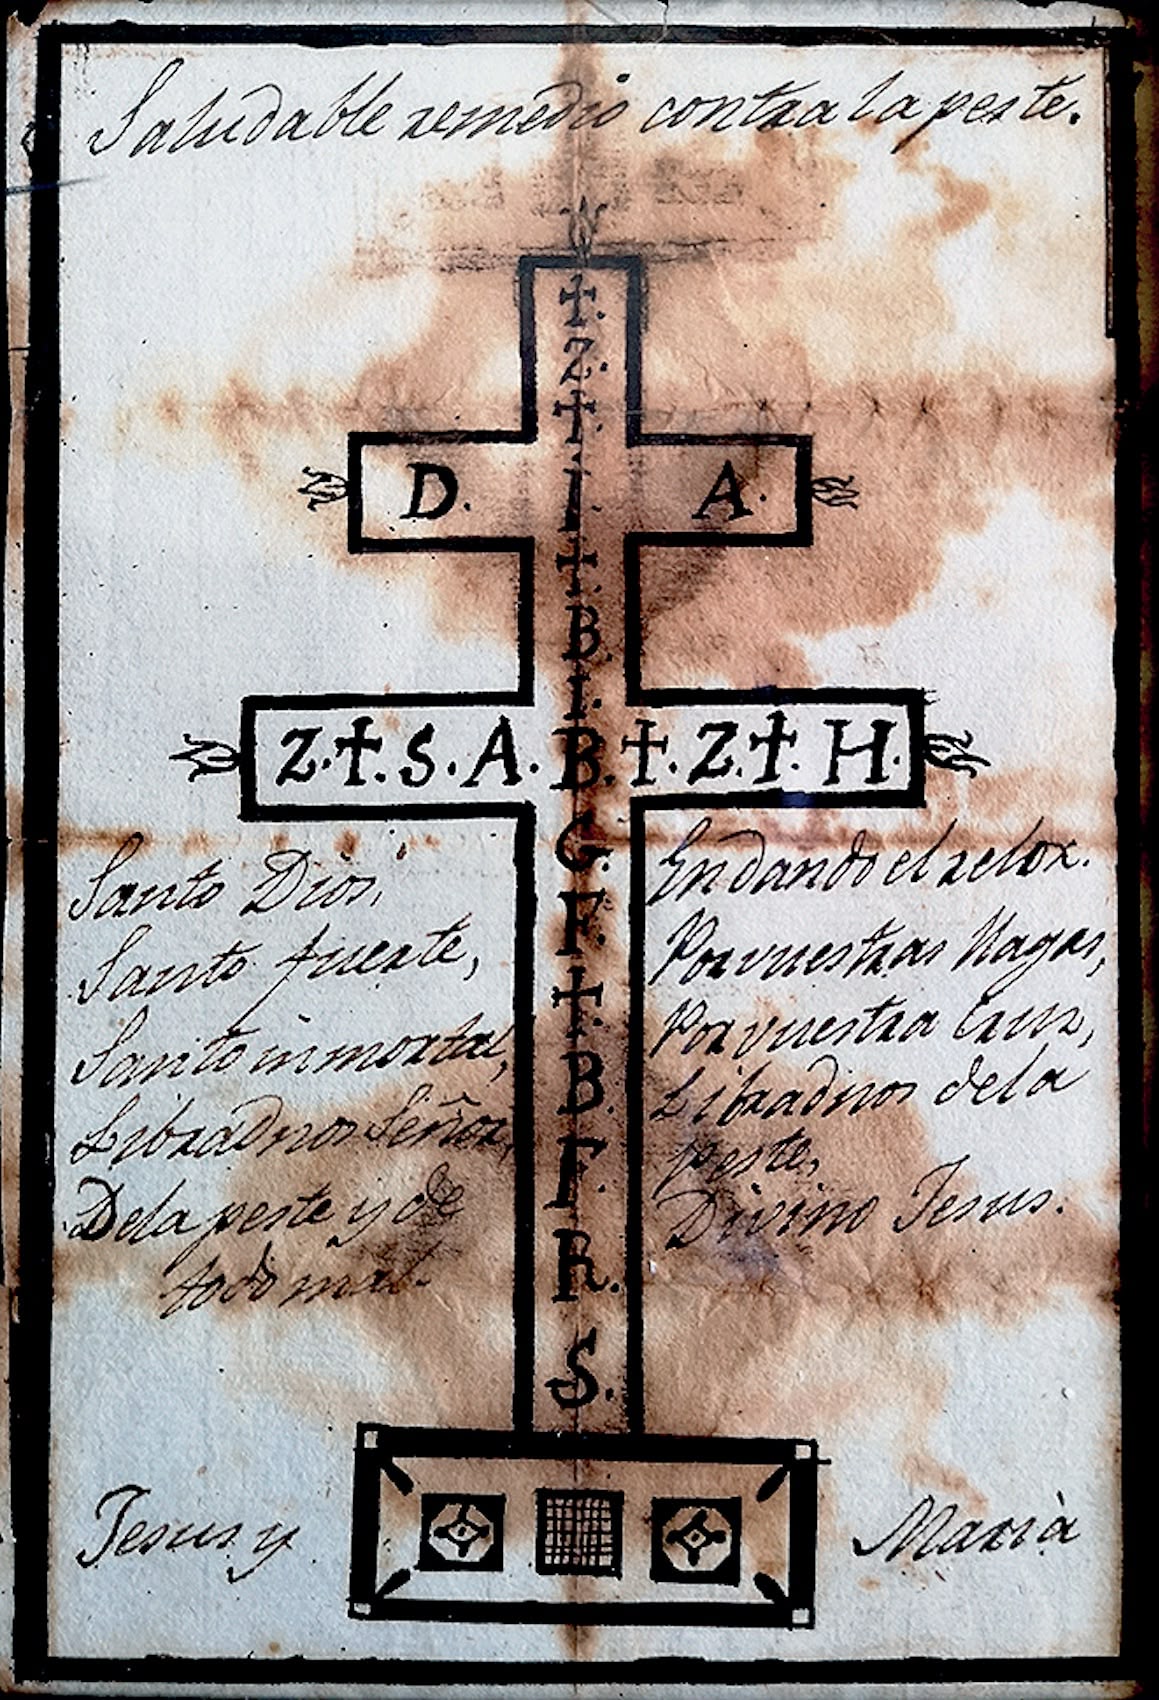 Saludable remedio contra la peste.
✝.
Z.
✝.
D. I. A.
✝
B.
I.
Z.✝.S.A.B.✝.Z.✝H.
G.
F.
✝.
B.
F.
R.
S.
Santo Dios,
Santo fuerte,
Santo inmortal,
Libradnos Señor,
De la peste y de
todo mal.
En dando el relox.
Por vuestras llagas,
Por vuestra Cruz,
Libradnos de la
peste,
Divino Jesus.
Jesus y Marià